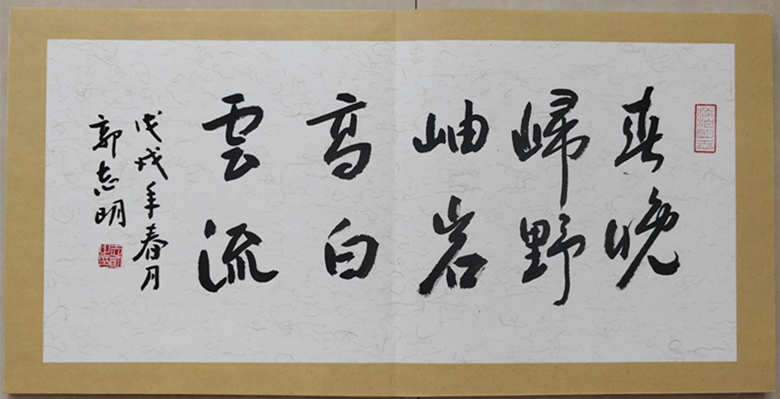 春晚
歸野
岫岩
高白
雲流
戊戌年春月
郭志明